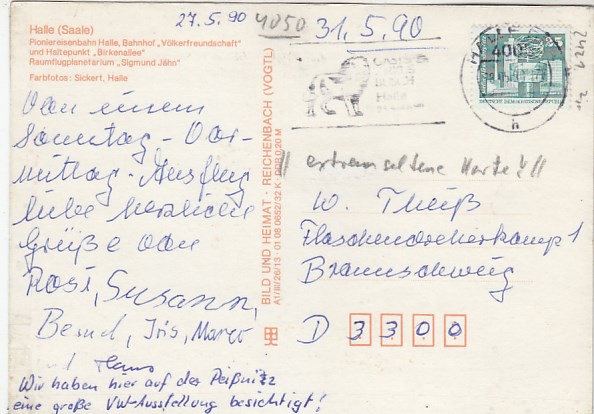 27.5.90 4050 31.5.90
Halle (Saale)
Pioniereisenbahn Halle, Bahnhof „Völkerfreundschaft"
und Haltepunkt „Birkenallee"
Raumflugplanetarium „Sigmund Jähn"
Farbfotos: Sickert, Halle
Von einem
Sonntag-Vor-
mittag-Ausflug
liebe herzliche
Grüße von
Rosi, Susann,
Bernd, Iris, Marco
und Hans
Wir haben hier auf der Peißnitz
eine große VW-Ausstellung besichtigt!
BILD UND HEIMAT · REICHENBACH (VOGTL)
A1/III/26/13 · 01 08 0652/32 K · DDR 0,20 M
HALLE
4001
Halle
h
DEUTSCHE DEMOKRATISCHE REPUBLIK
!! extrem seltene Karte !!!
W. Theiß
Flaschendreherkamp 1
Braunschweig
D 3300